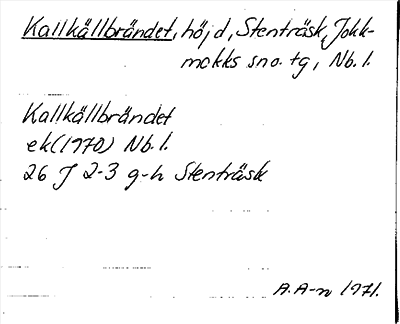 Kallkällbrändet, höjd, Stenträsk, Jokk-
mokks sno. tg, Nb. l.
Kallkällbrändet
ek (1970) Nb. l.
26 J 2-3 g-h Stenträsk
A. A-n 1971.